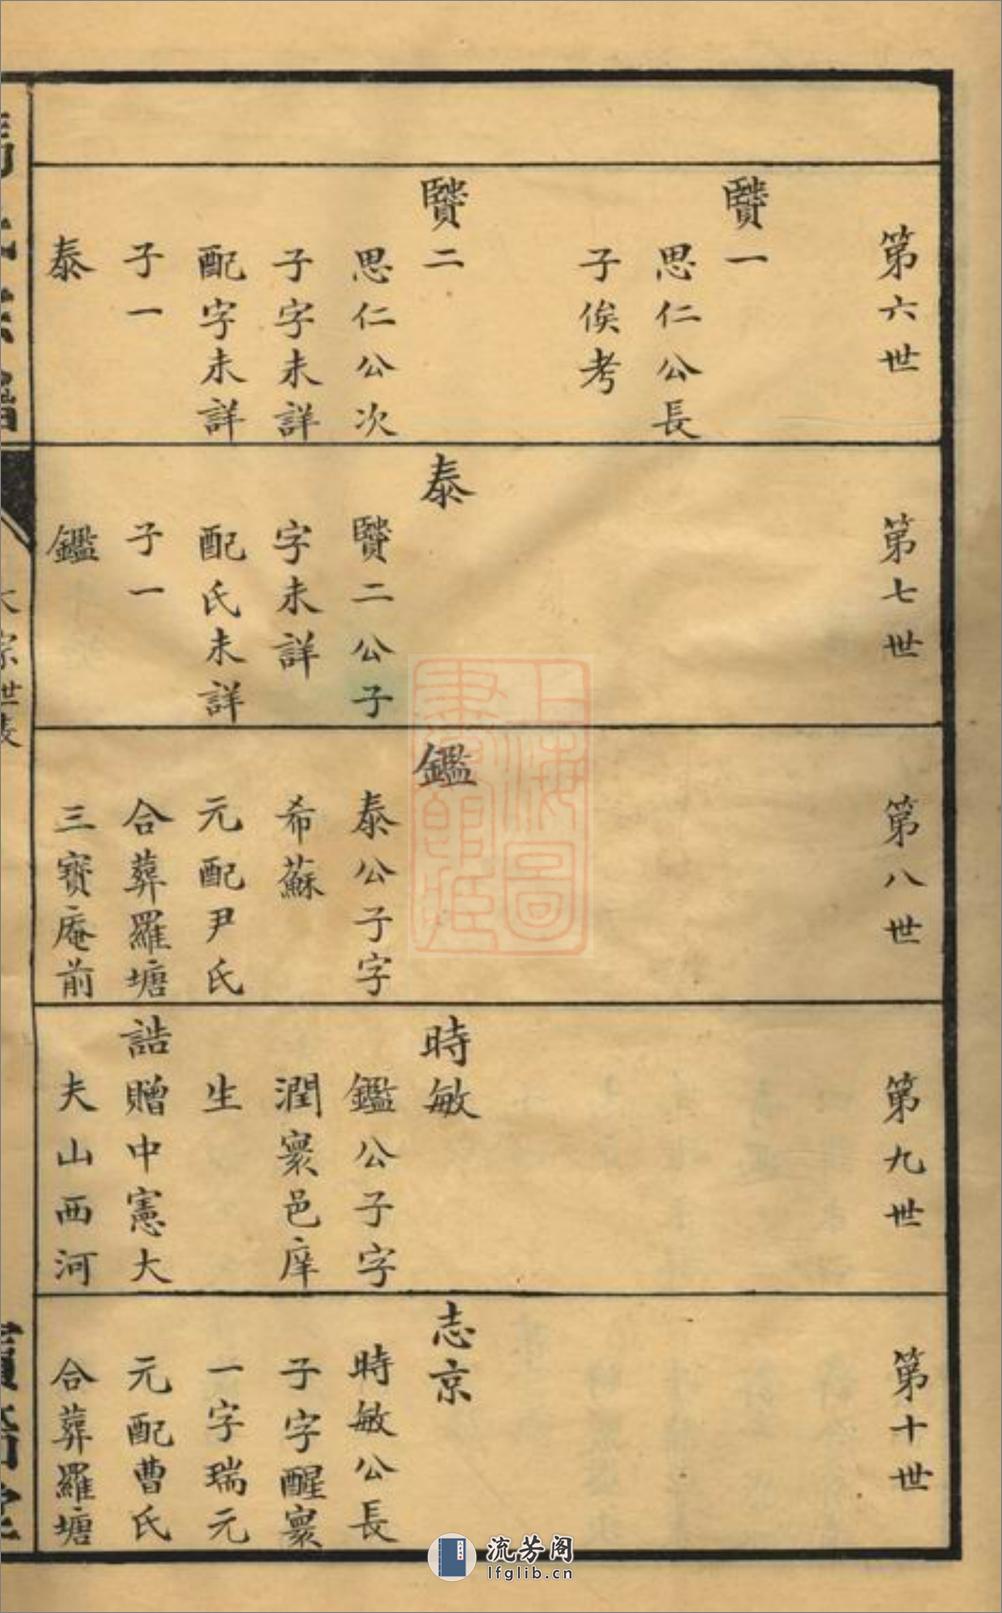 第六世
賢一
思仁公長
子俟考
賢二
思仁公次
子字未詳
配字未詳
子一
泰
第七世
泰
賢二公子
字未詳
配氏未詳
子一
鑑
第八世
鑑
泰公子字
希蘇
元配尹氏
合葬羅塘
三寶庵前
第九世
時敏
鑑公子字
潤寰邑庠
生
誥贈中憲大
夫山西河
第十世
志京
時敏公長
子字醒寰
一字瑞元
元配曹氏
合葬羅塘
大宗世表
流芳阁
lfglib.cn